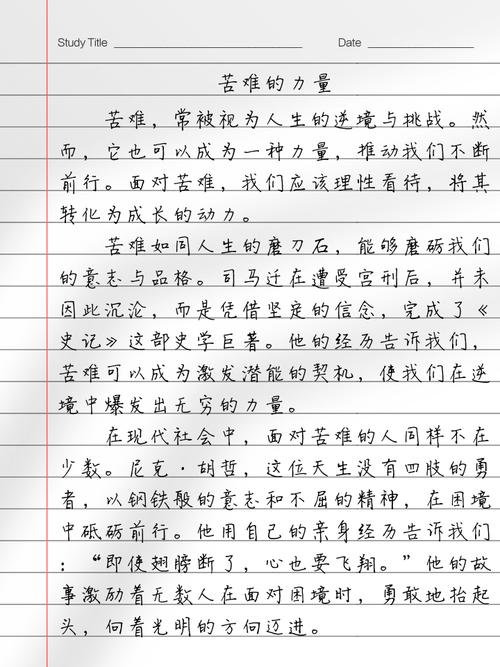 Study Title
Date
苦难的力量
苦难，常被视为人生的逆境与挑战。然
而，它也可以成为一种力量，推动我们不断
前行。面对苦难，我们应该理性看待，将其
转化为成长的动力。
苦难如同人生的磨刀石，能够磨砺我们
的意志与品格。司马迁在遭受宫刑后，并未
因此沉沦，而是凭借坚定的信念，完成了《
史记》这部史学巨著。他的经历告诉我们，
苦难可以成为激发潜能的契机，使我们在逆
境中爆发出无穷的力量。
在现代社会中，面对苦难的人同样不在
少数。尼克·胡哲，这位天生没有四肢的勇
者，以钢铁般的意志和不屈的精神，在困境
中砥砺前行。他用自己的亲身经历告诉我们
：“即使翅膀断了，心也要飞翔。”他的故
事激励着无数人在面对困境时，勇敢地抬起
头，向着光明的方向迈进。